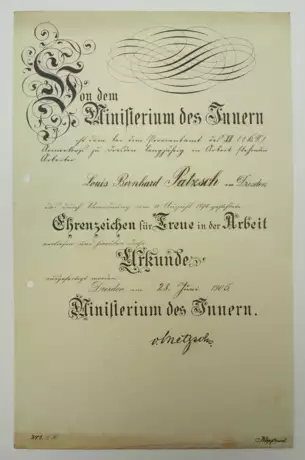 Von dem
Ministerium des Innern
ist dem bei dem Proviantamt des XII (1. K. S.)
Armeekorps zu Dresden langjährig in Arbeit stehenden
Arbeiter
Louis Bernhard Patzsch in Dresden
das durch Verordnung vom
Ehrenzeichen für Treue in der Arbeit
verliehen und hierüber diese
Urkunde
ausgefertigt worden.
Dresden, am 28. Juni 1905
Ministerium des Innern.
v. Metzsch